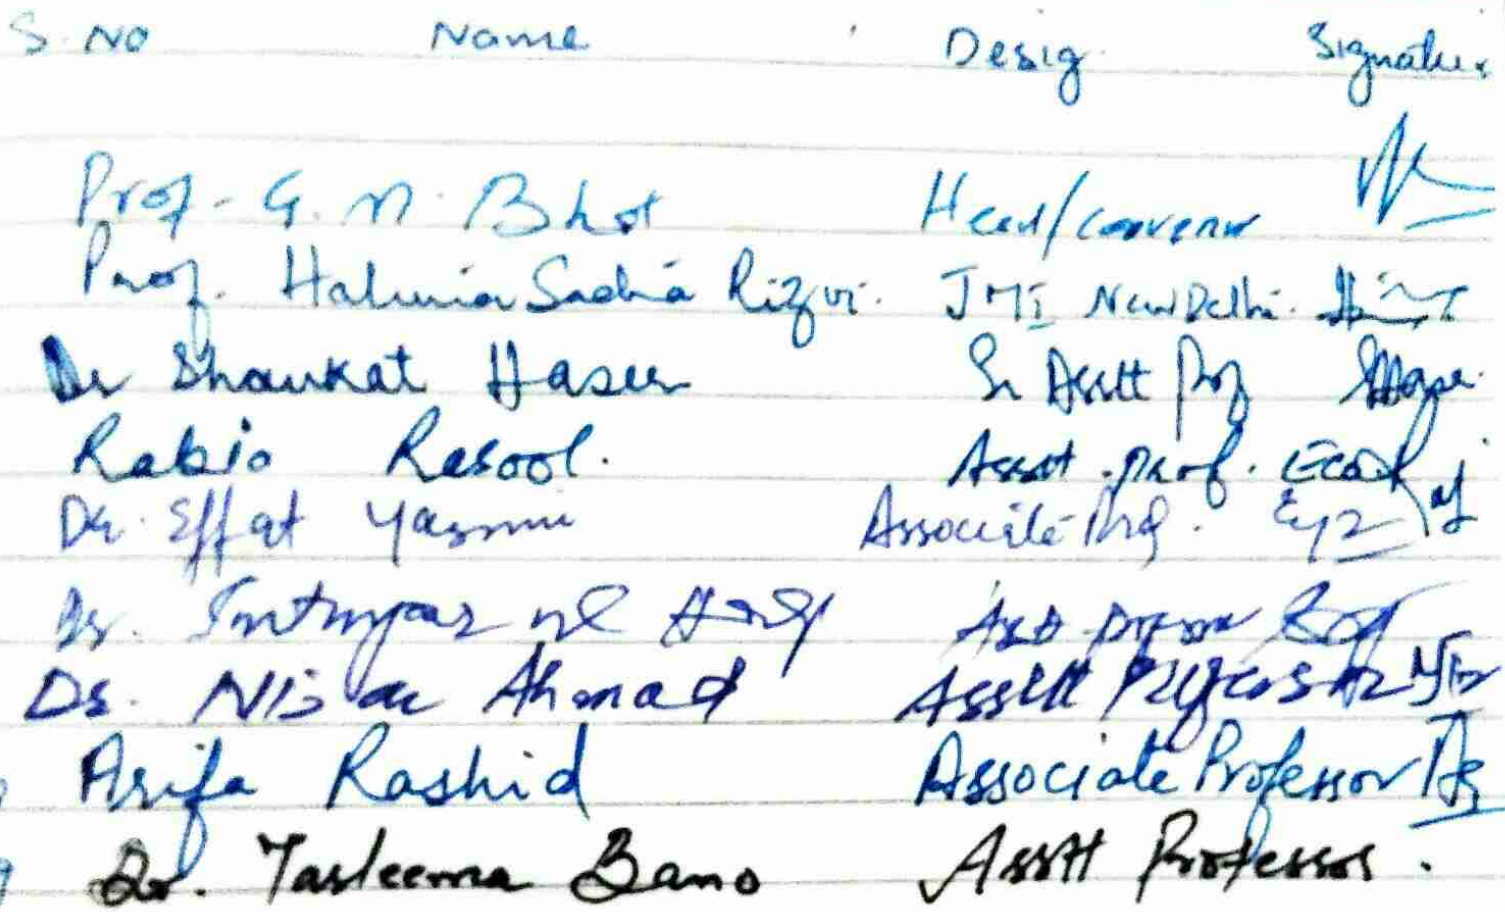 S. No Name Desig Signature
Prof. G. M. Bhat Head/Convenor
Prof. Halima Sadia Rizvi. JMI New Delhi.
Dr Shaukat Haseen Sr Asstt Prof
Rabia Rasool. Asstt. Prof. Eco
Dr. Effat Yasmin Associate Prof.
Dr. Imtiyaz ul Haq Asst. Professor
Dr. Nisar Ahmad Asstt Professor
Arifa Rashid Associate Professor
Dr. Tasleema Bano Asstt Professor.